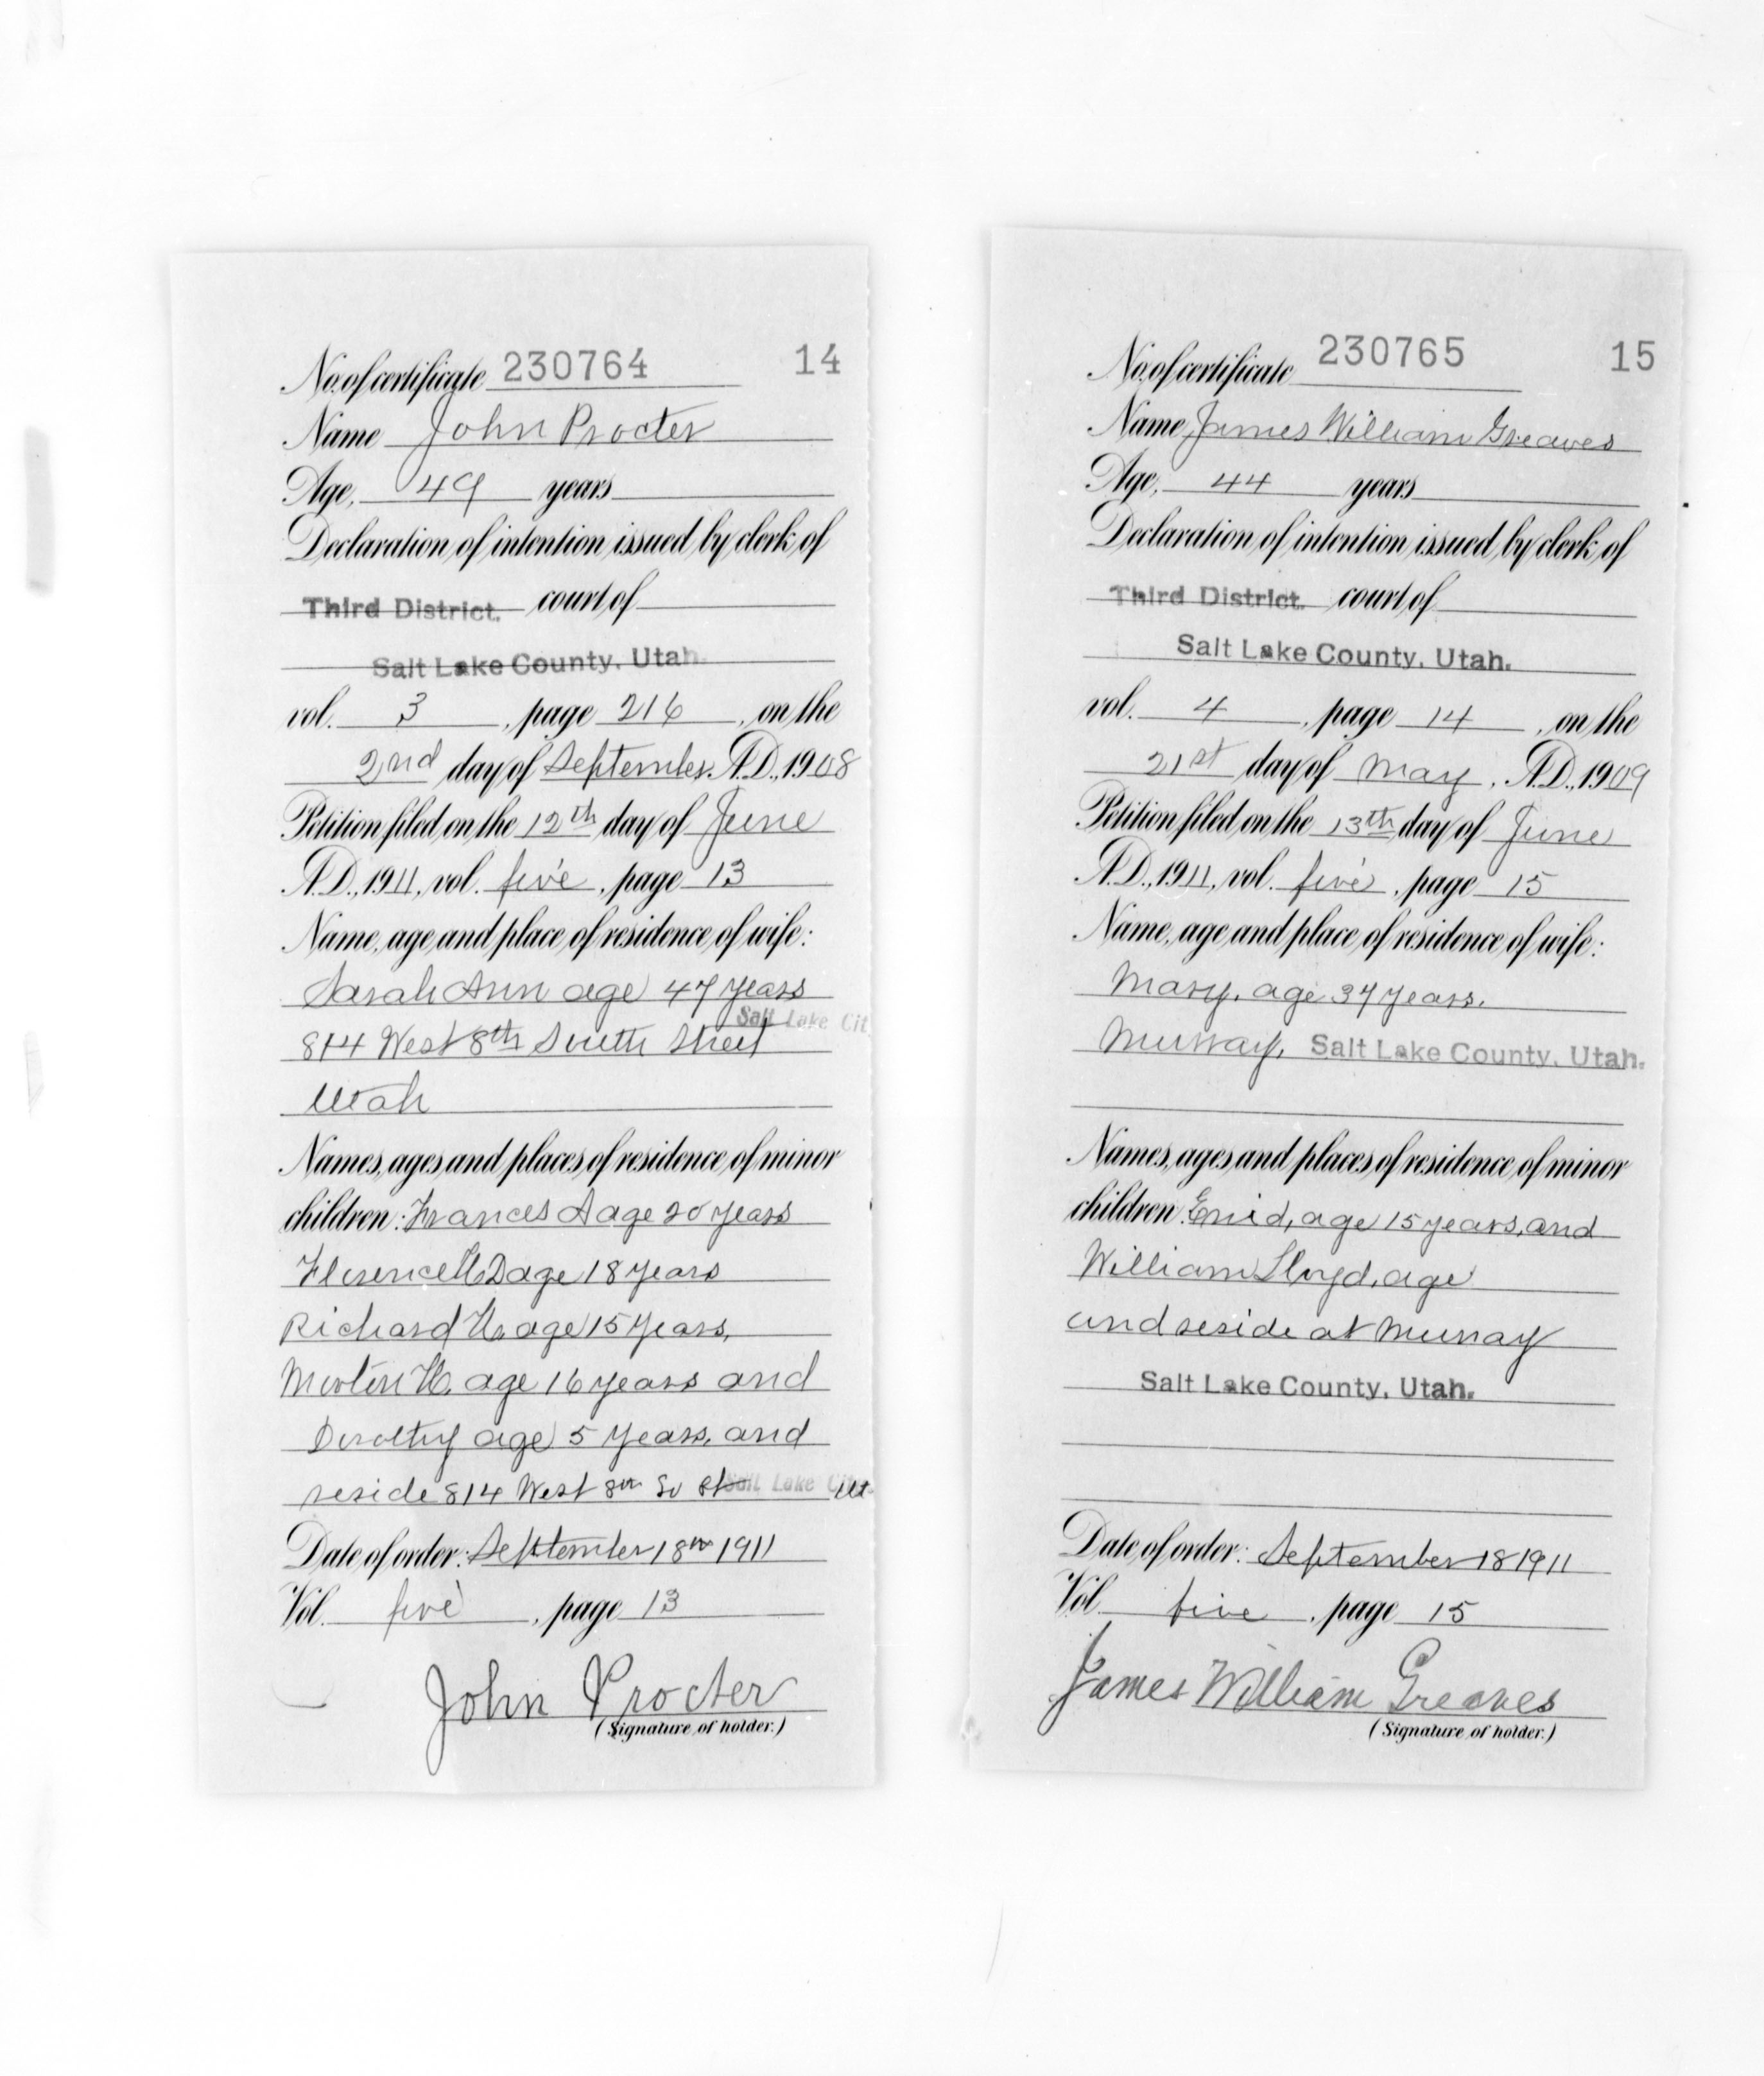 No. of certificate 230764 14
Name John Procter
Age, 49 years
Declaration of intention issued by clerk of
Third District. court of
Salt Lake County, Utah.
vol. 3, page 216, on the
2nd day of September A.D., 1908
Petition filed on the 12th day of June
A.D., 1911, vol. five, page 13
Name, age and place of residence of wife:
Sarah Ann age 47 years
Salt Lake Cit
814 West 8th South Street
Utah
Names, ages and places of residence of minor
children: Frances A age 20 years
Florence age 18 years
Richard H. age 15 years,
H. age 16 years and
Dorothy age 5 years, and
reside 814 West 8th So St Salt Lake City Ut
Date of order: September 18th 1911
Vol. five, page 13
John Procter
(Signature of holder.)
No. of certificate 230765 15
Name James William Greaves
Age, 44 years
Declaration of intention issued by clerk of
Third District. court of
Salt Lake County, Utah.
vol. 4, page 14, on the
21st day of May, A.D., 1909
Petition filed on the 13th day of June
A.D., 1911, vol. five, page 15
Name, age and place of residence of wife:
Mary, age 37 years.
Murray, Salt Lake County, Utah.
Names, ages and places of residence of minor
children: Enid, age 15 years, and
William Lloyd, age
and reside at Murray
Salt Lake County, Utah.
Date of order: September 18 1911
Vol. five, page 15
James William Greaves
(Signature of holder.)